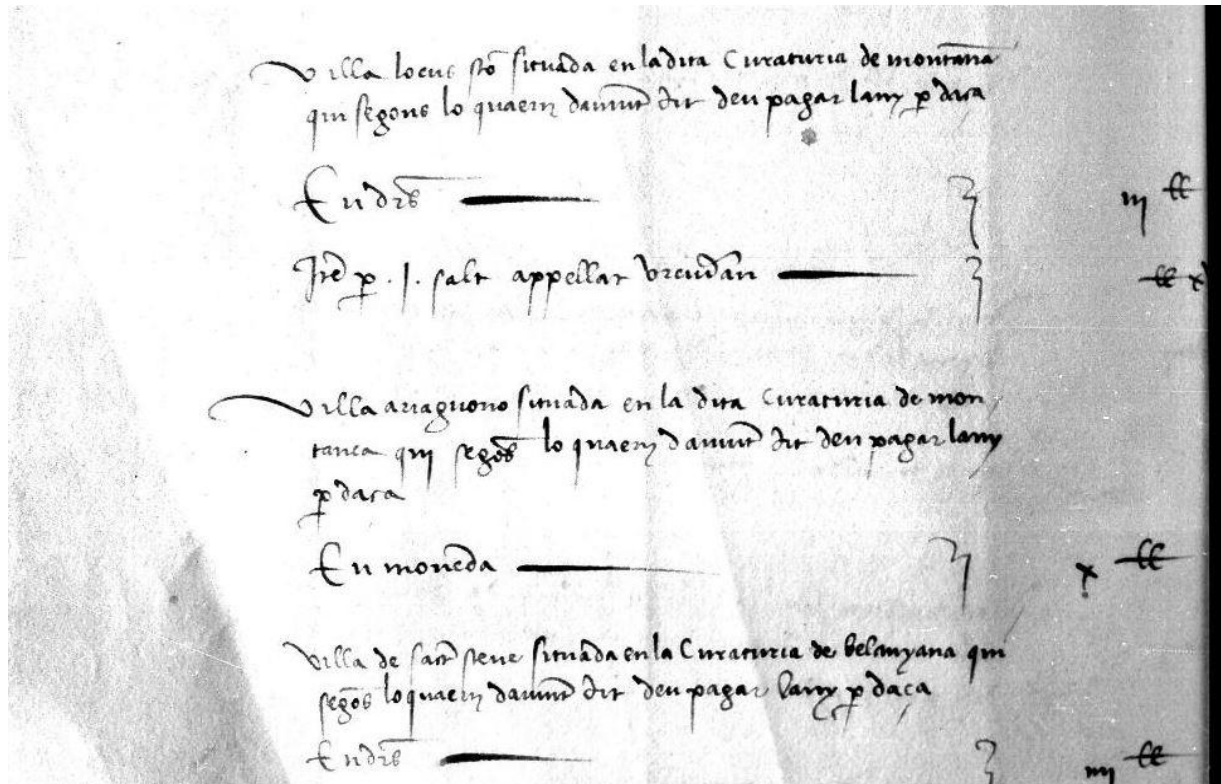 villa locus situada en la dita Curaturia de montana
qui segons lo quaern damunt dit deu pagar lany p daça
En drs iij ll
Ite p .j. salt appellat ll x
villa ariaguono situada en la dita Curaturia de mon
tanea qui segos lo quaern damunt dit deu pagar lany
p daça
En moneda x ll
villa de sact steue situada en la Curaturia de qui
segos lo quaern damunt dit deu pagar lany p daça
En drs iiij ll